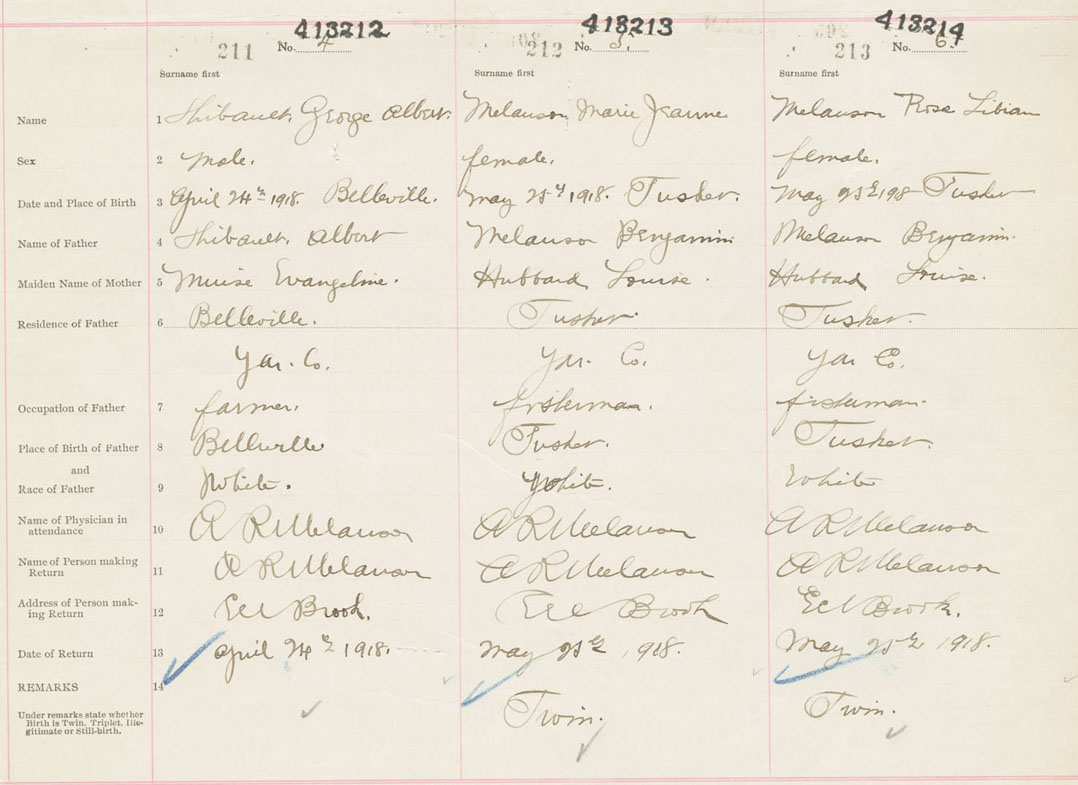 413212 413213 413214
211 No. 4 212 No. 5 213 No. 6
Surname first Surname first Surname first
Name 1 Thibault, George Albert. Melanson Marie Jeanne Melanson Rose Libian
Sex 2 Male. female. female.
Date and Place of Birth 3 April 24th 1918. Belleville. May 25th 1918. Tusket. May 25th 198 Tusket
Name of Father 4 Thibault, Albert Melanson Benjamin Melanson Benjamin.
Maiden Name of Mother 5 Muise Evangeline. Hubbard Louise. Hubbard Louise.
Residence of Father 6 Belleville. Tusket. Tusket.
Yar. Co. Yar. Co. Yar Co.
Occupation of Father 7 farmer. fisherman. fisherman.
Place of Birth of Father 8 Belleville Tusket. Tusket.
and
Race of Father 9 White. White. White
Name of Physician in
attendance 10 A R Melanson A R Melanson A R Melanson
Name of Person making
Return 11 A R Melanson A R Melanson A R Melanson
Address of Person mak-
ing Return 12 Eel Brook. Eel Brook Eel Brook.
Date of Return 13 April 24th 1918. May 25th, 1918. May 25th, 1918.
REMARKS 14
Under remarks state whether
Birth is Twin. Triplet, Ille-
gitimate or Still-birth.
Twin. Twin.